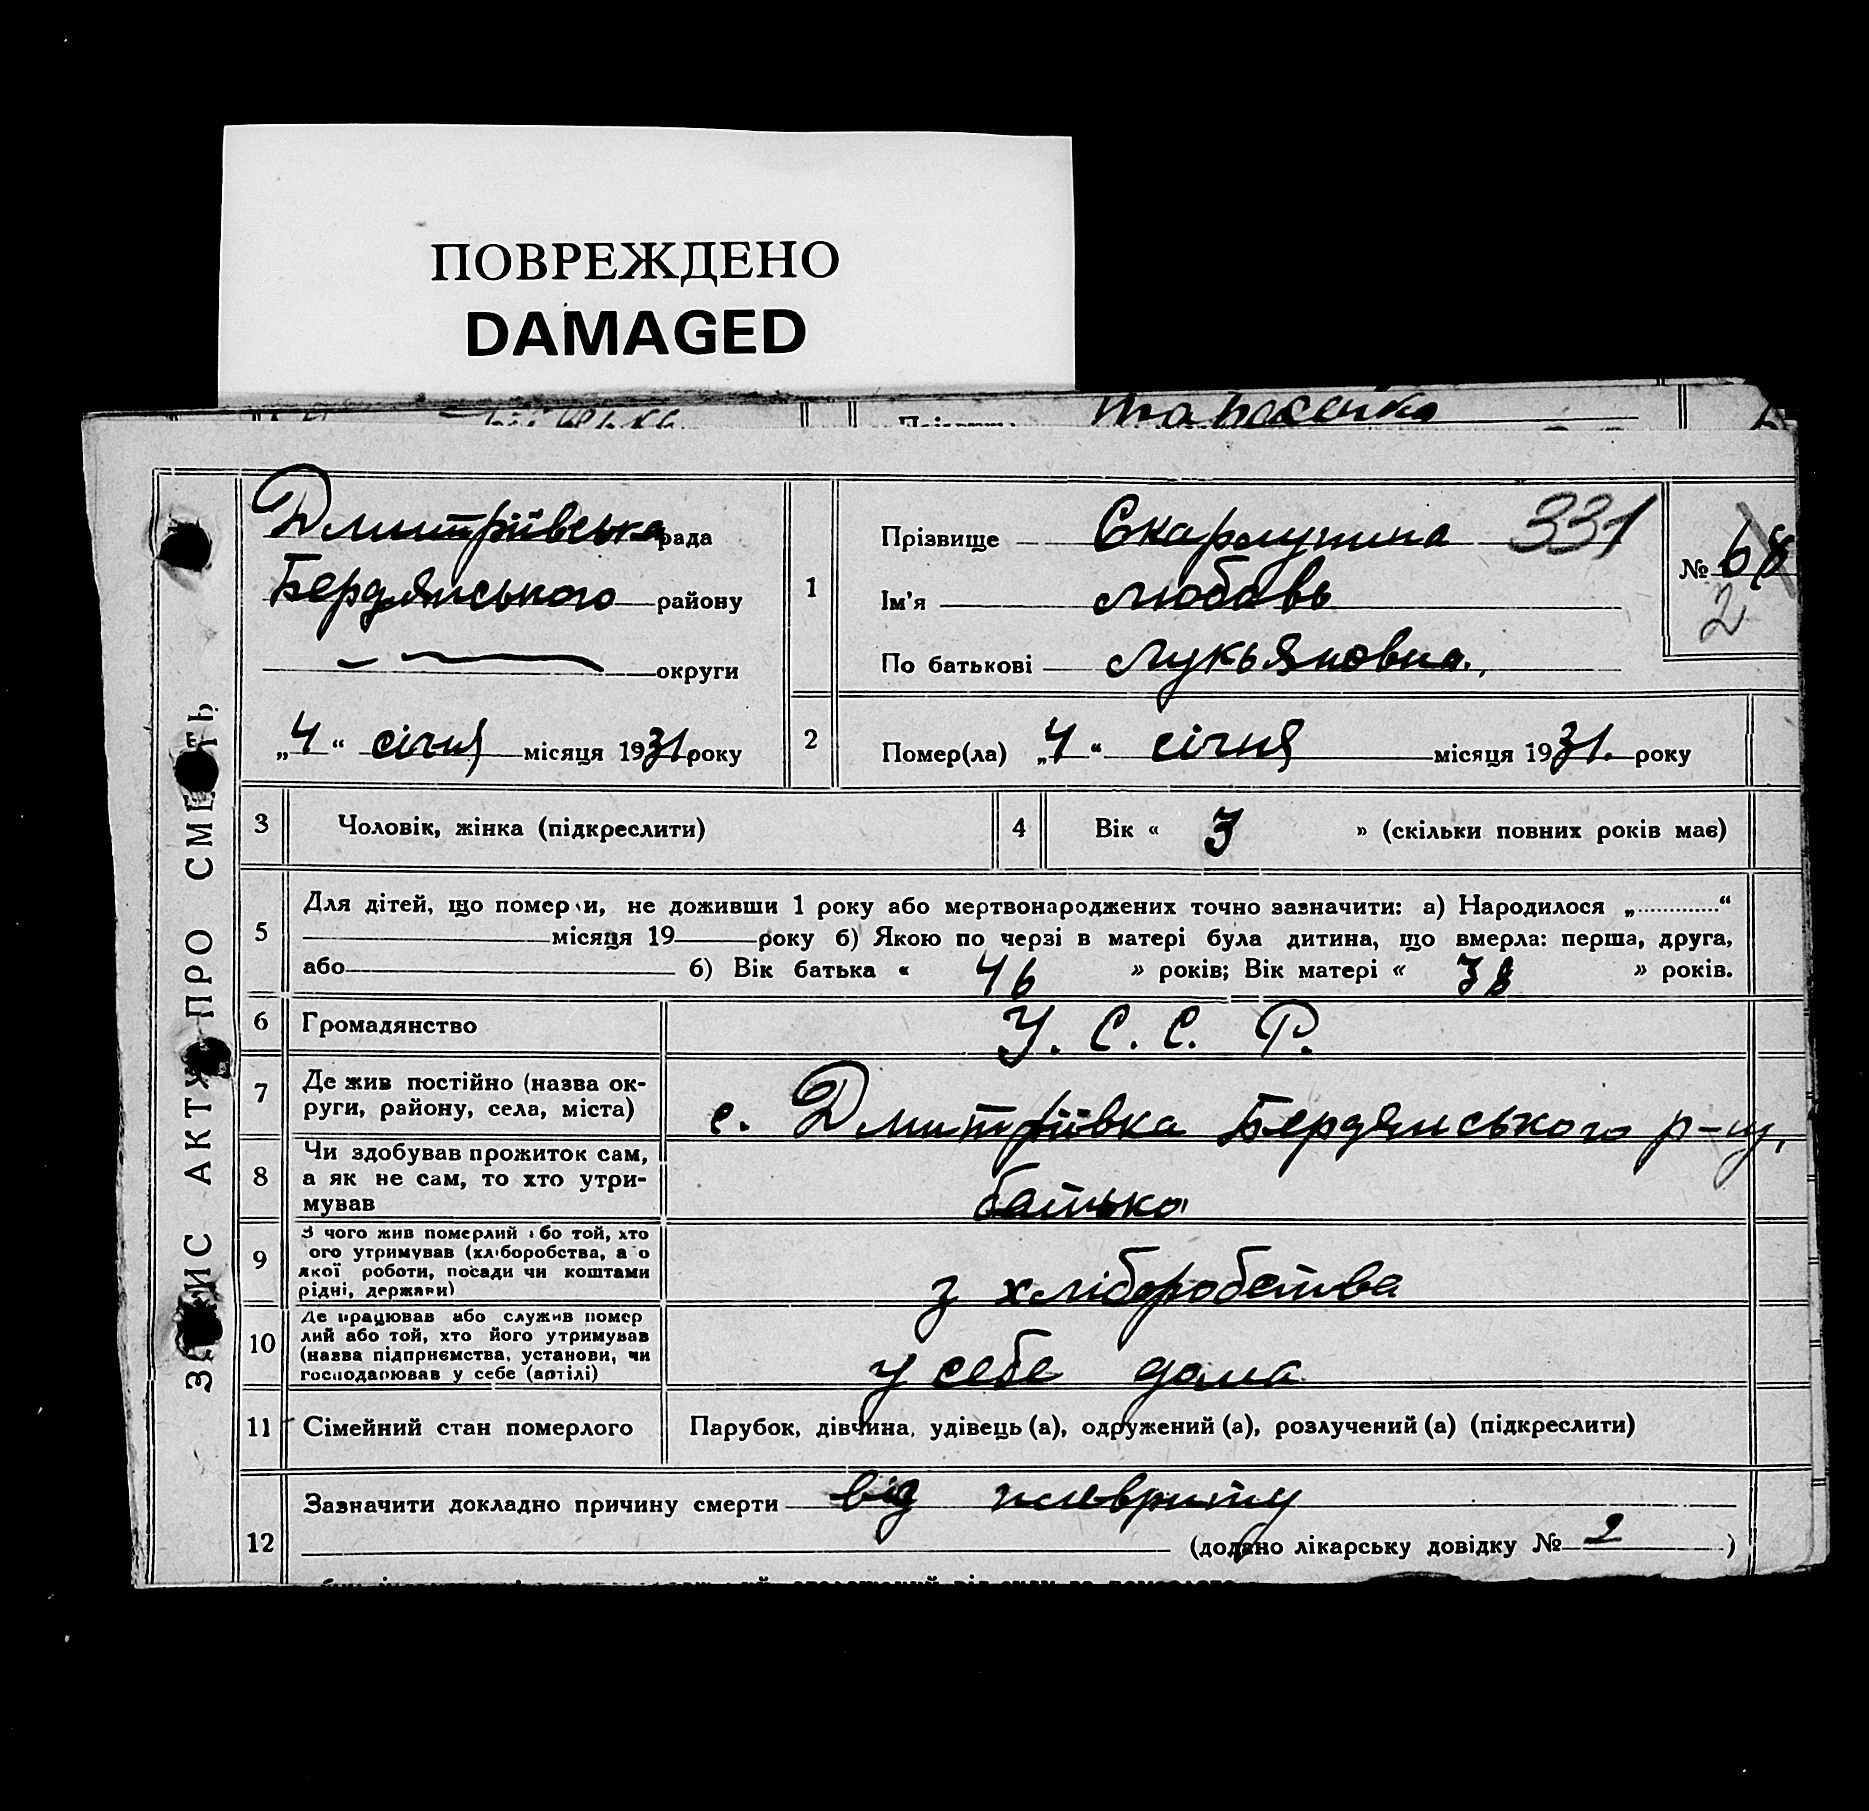 ПОВРЕЖДЕНО
DAMAGED
Тарасенко
ЗАПИС АКТУ ПРО СМЕРТЬ
Дмитріївська рада
Бердянського району
округи
„4“ січня місяця 1931 року
1
Прізвище Скарлупина 331
Ім'я Любовь
По батькові Лукьяновна.
№ 68
2
2
Помер(ла) „4“ січня місяця 1931. року
3 Чоловік, жінка (підкреслити)
4 Вік « 3 » (скільки повних років має)
5
Для дітей, що померли, не доживши 1 року або мертвонароджених точно зазначити: а) Народилося „ “
місяця 19 року б) Якою по черзі в матері була дитина, що вмерла: перша, друга,
або б) Вік батька « 46 » років; Вік матері « 38 » років.
6 Громадянство У. С. С. Р.
7
Де жив постійно (назва ок-
руги, району, села, міста)
с. Дмитріївка Бердянського р-ну,
8
Чи здобував прожиток сам,
а як не сам, то хто утри-
мував
батько
9
З чого жив померлий або той, хто
ого утримував (хліборобства, а о
якої роботи, посади чи коштами
рідні, держави)
з хліборобства
10
Де працював або служив помер
лий або той, хто його утримував
(назва підприємства, установи, чи
господарював у себе (артілі)
у себе дома
11 Сімейний стан померлого Парубок, дівчина, удівець (а), одружений (а), розлучений (а) (підкреслити)
12
Зазначити докладно причину смерти від плевриту
(додано лікарську довідку № 2 )